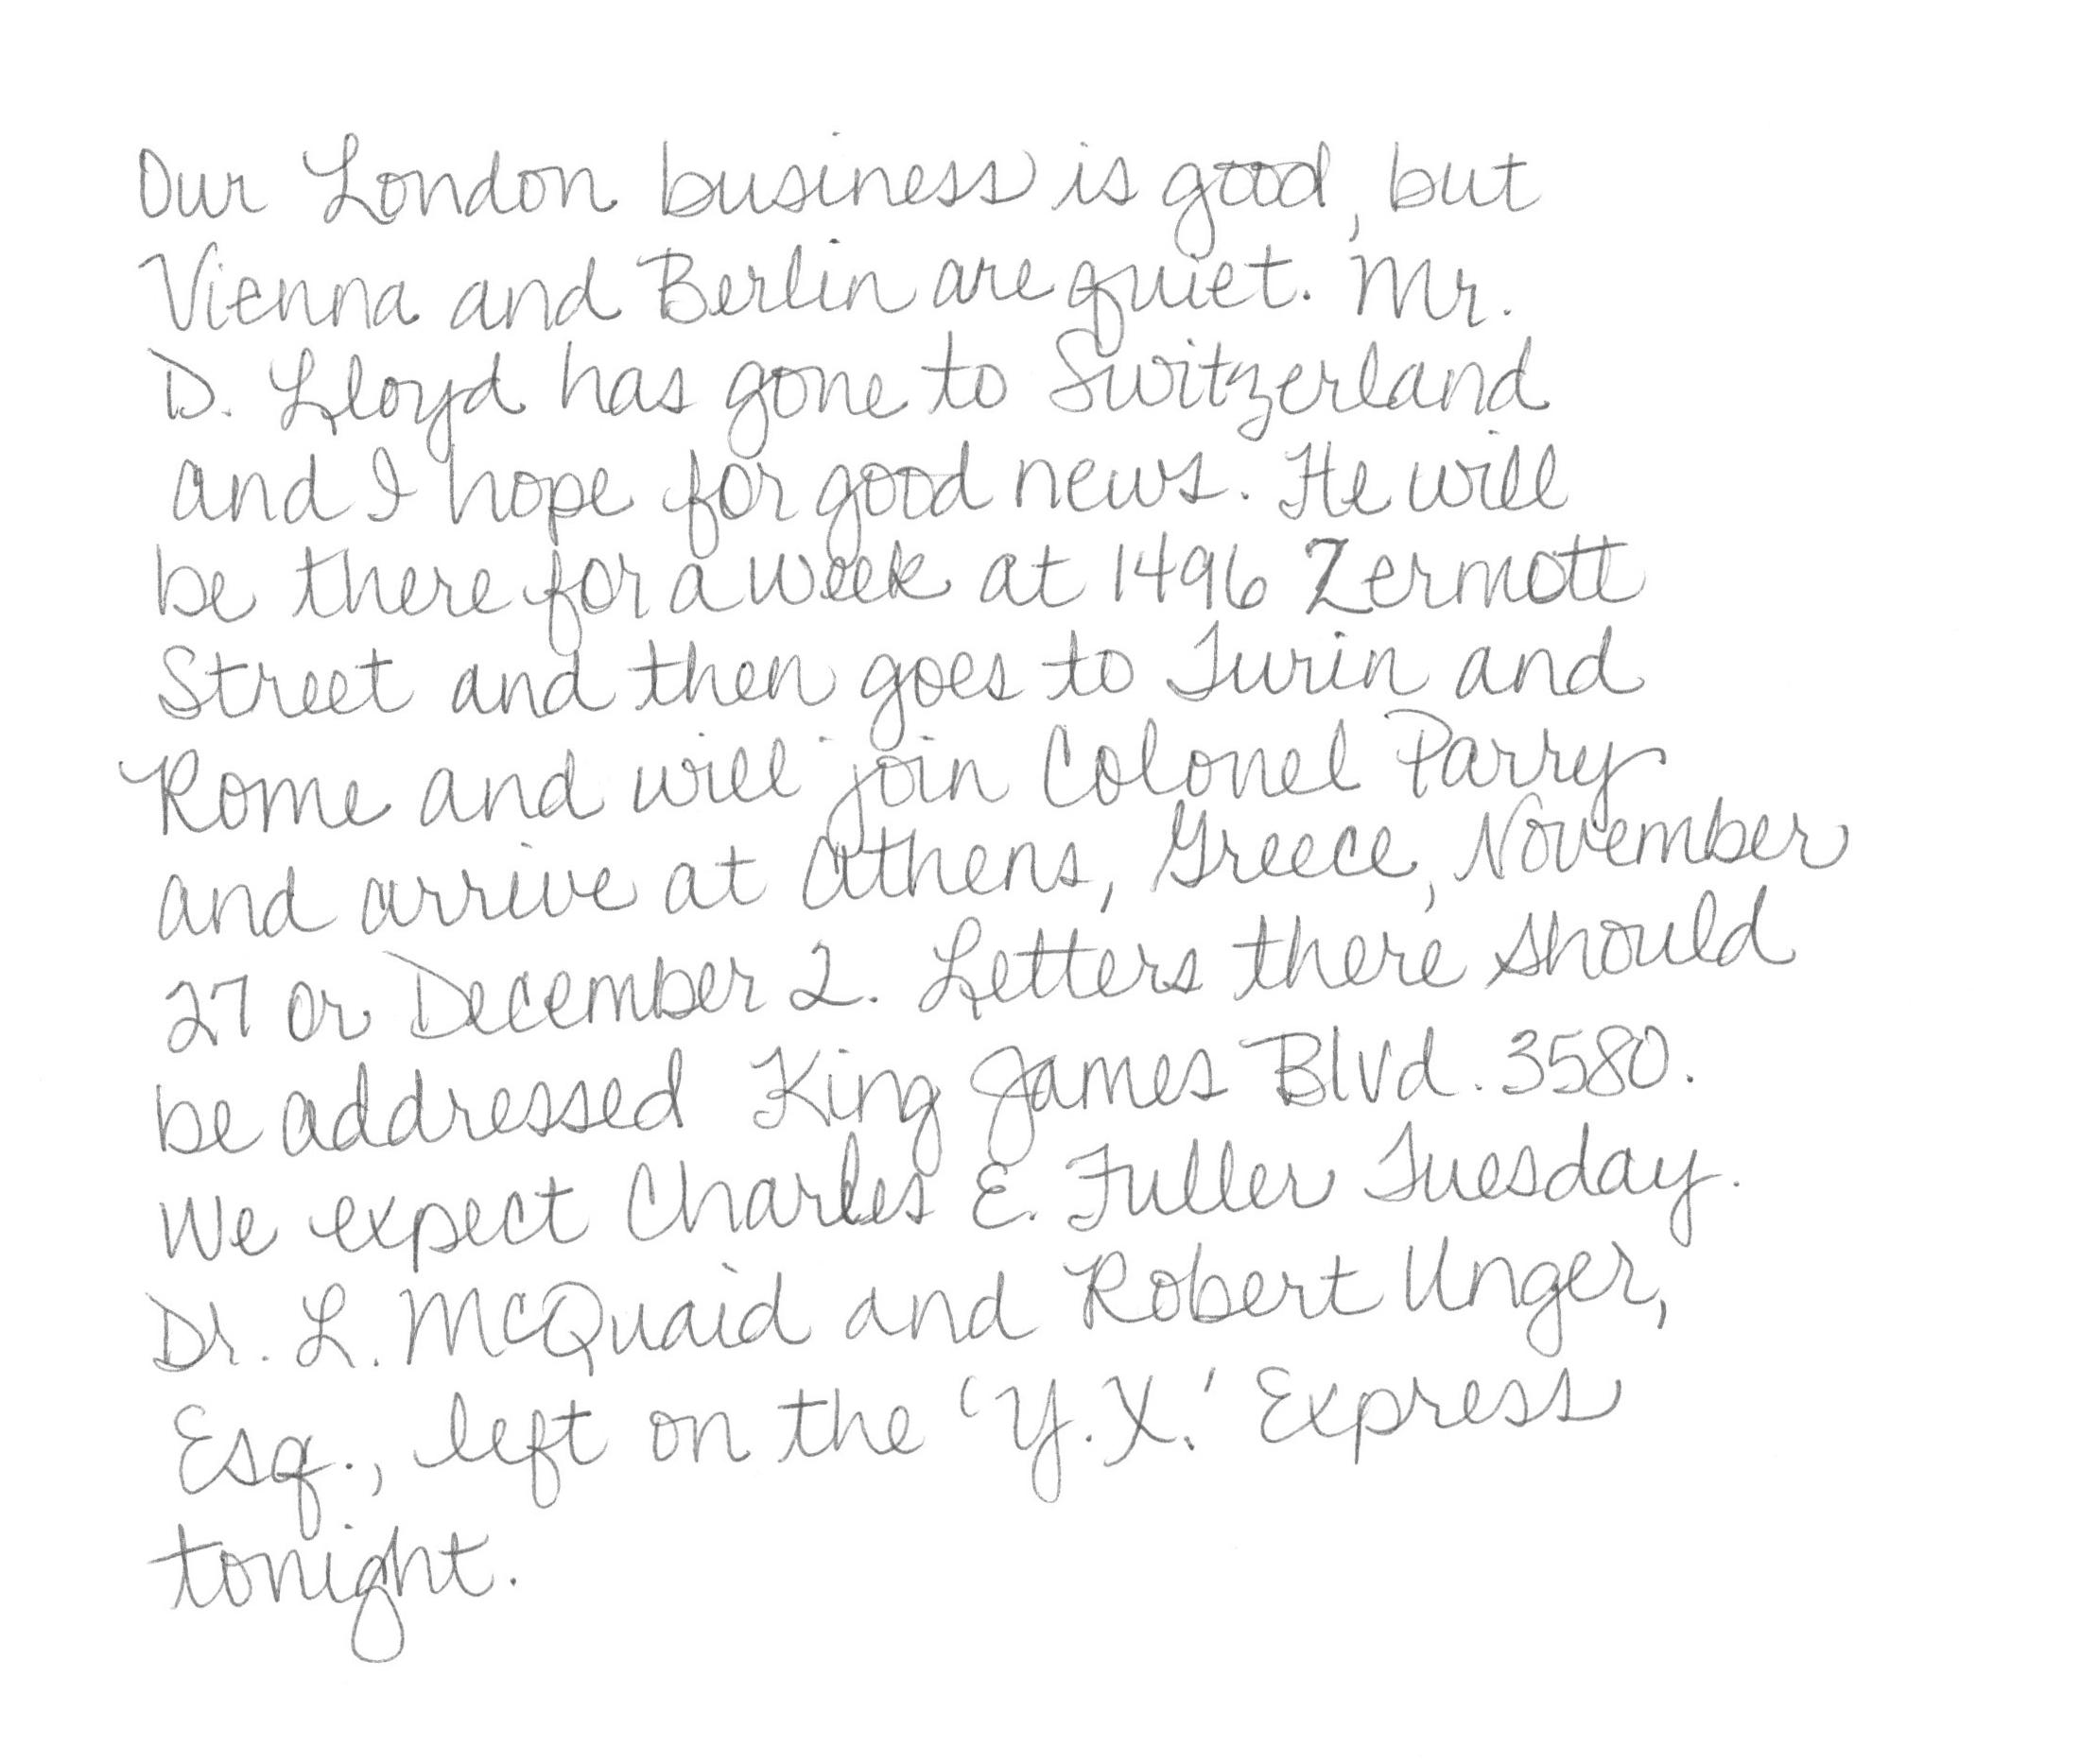 Our London business is good, but
Vienna and Berlin are quiet. Mr.
D. Lloyd has gone to Switzerland
and I hope for good news. He will
be there for a week at 1496 Zermott
Street and then goes to Turin and
Rome and will join Colonel Parry
and arrive at Athens, Greece, November
27 or December 2. Letters there should
be addressed King James Blvd. 3580.
We expect Charles E. Fuller Tuesday.
Dr. L. McQuaid and Robert Unger,
Esq., left on the 'Y.X.' Express
tonight.